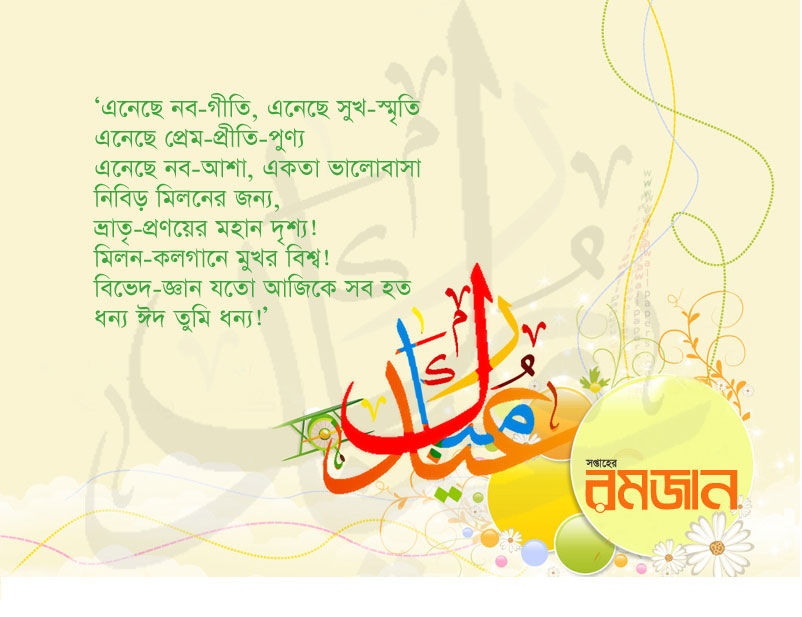 ‘এনেছে নব-গীতি, এনেছে সুখ-স্মৃতি
এনেছে প্রেম-প্রীতি-পুণ্য
এনেছে নব-আশা, একতা ভালোবাসা
নিবিড় মিলনের জন্য,
ভ্রাতৃ-প্রণয়ের মহান দৃশ্য!
মিলন-কলগানে মুখর বিশ্ব!
বিভেদ-জ্ঞান যতো আজিকে সব হত
ধন্য ঈদ তুমি ধন্য!’
عيد مبارك
সপ্তাহের
রমজান